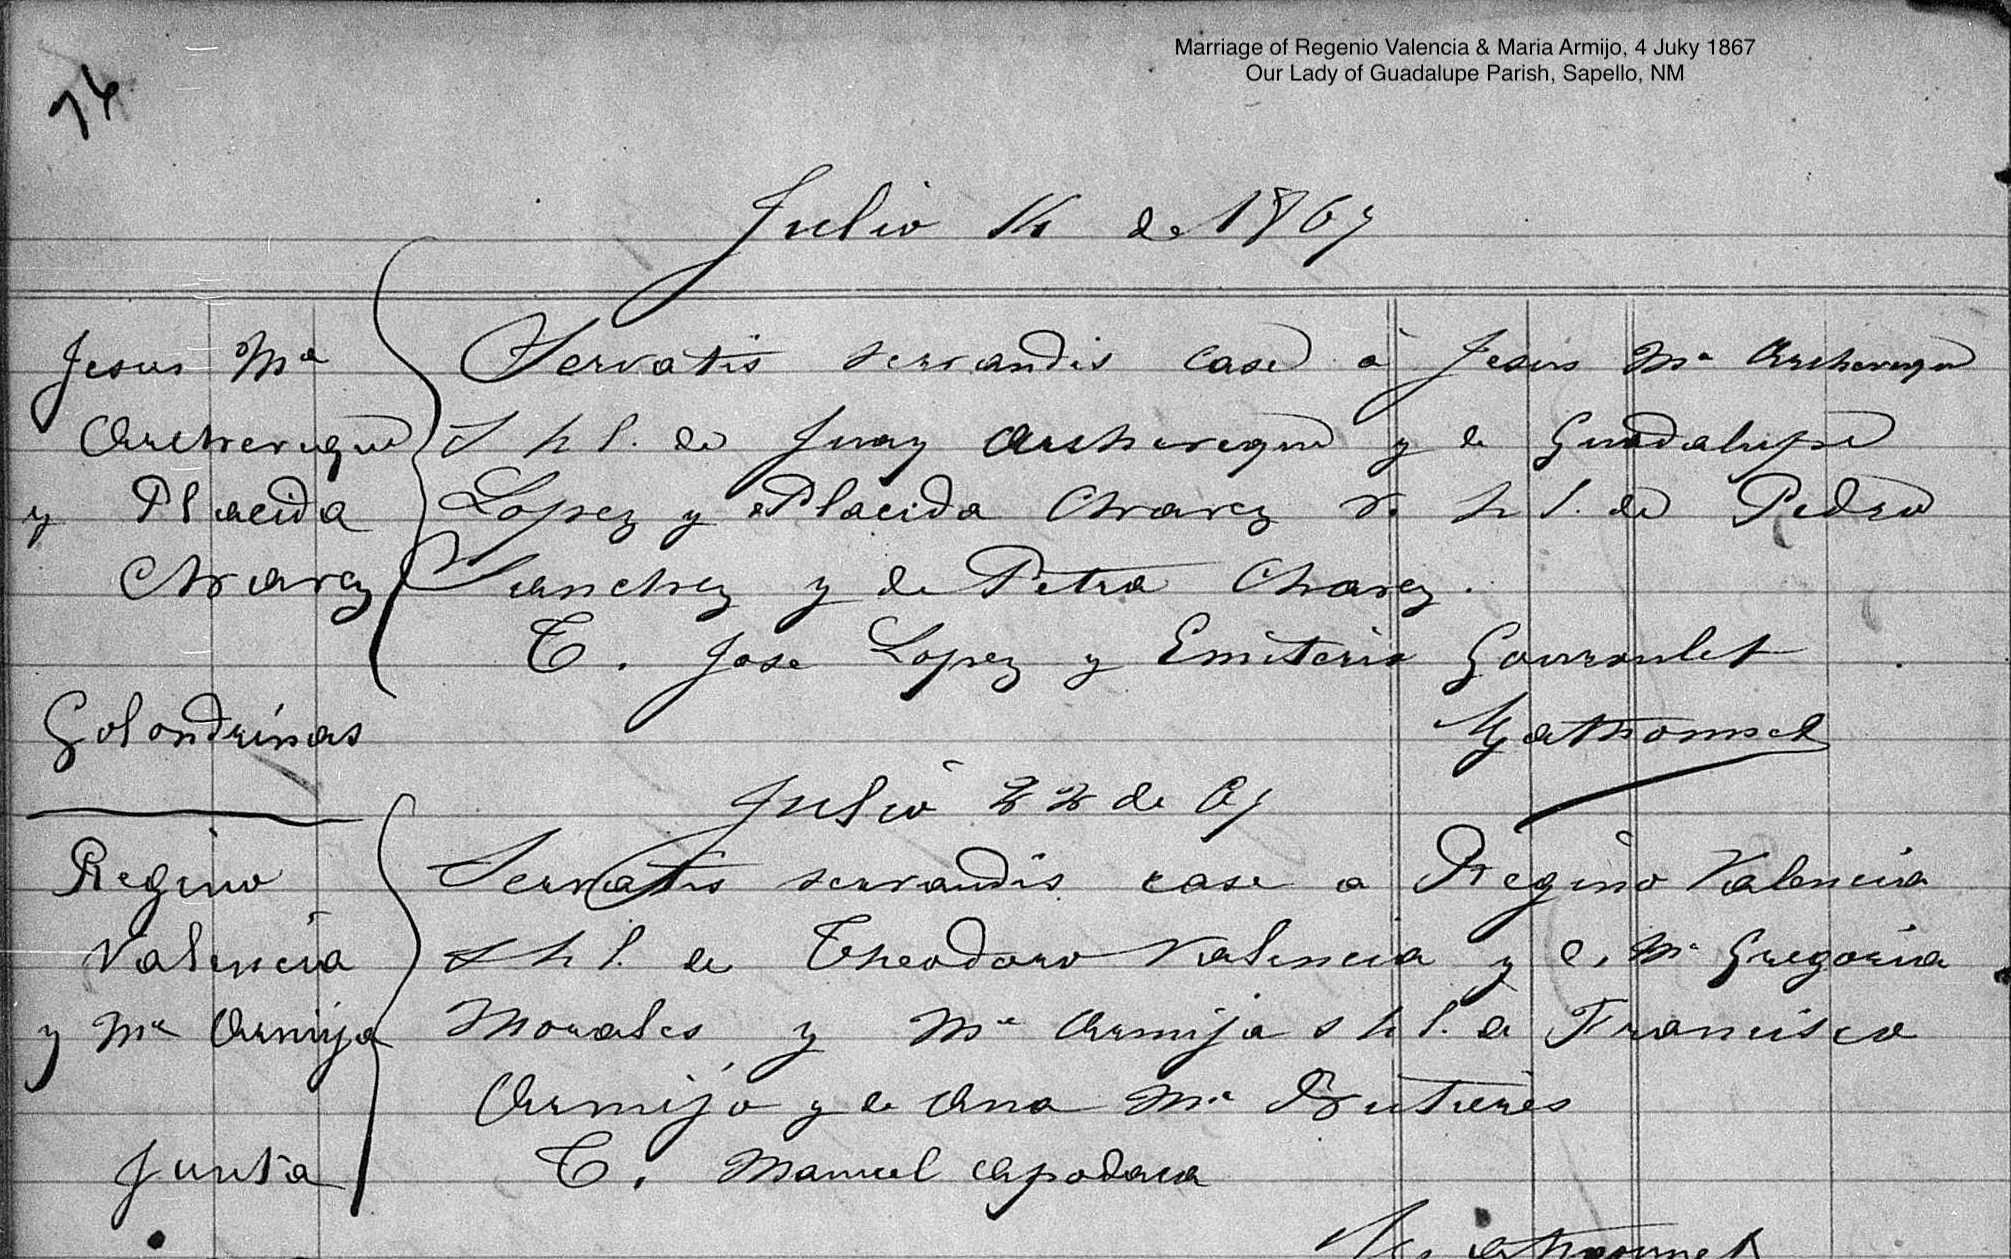 Marriage of Regenio Valencia & Maria Armijo, 4 Juky 1867
Our Lady of Guadalupe Parish, Sapello, NM
74
Julio 14 de 1867
Jesus Ma
Archeveque
y Placida
Chavez
Servatis servandis case à Jesus Ma Archeveque
s h l. de Juan Archeveque y de Guadalupe
Lopez y Placida Chavez s. h l. de Pedro
Sanchez y de Petra Chavez.
T. Jose Lopez y Emiterio
Golondrinas
Julio 22 de 67
Regino
Valencia
y Ma Armijo
Servatis servandis case a Regino Valencia
s h l. de Theodoro Valencia y de Ma Gregoria
Morales y Ma Armijo s h l. de Francisco
Armijo y de Ana Ma
Junta
T. Manuel Apodaca